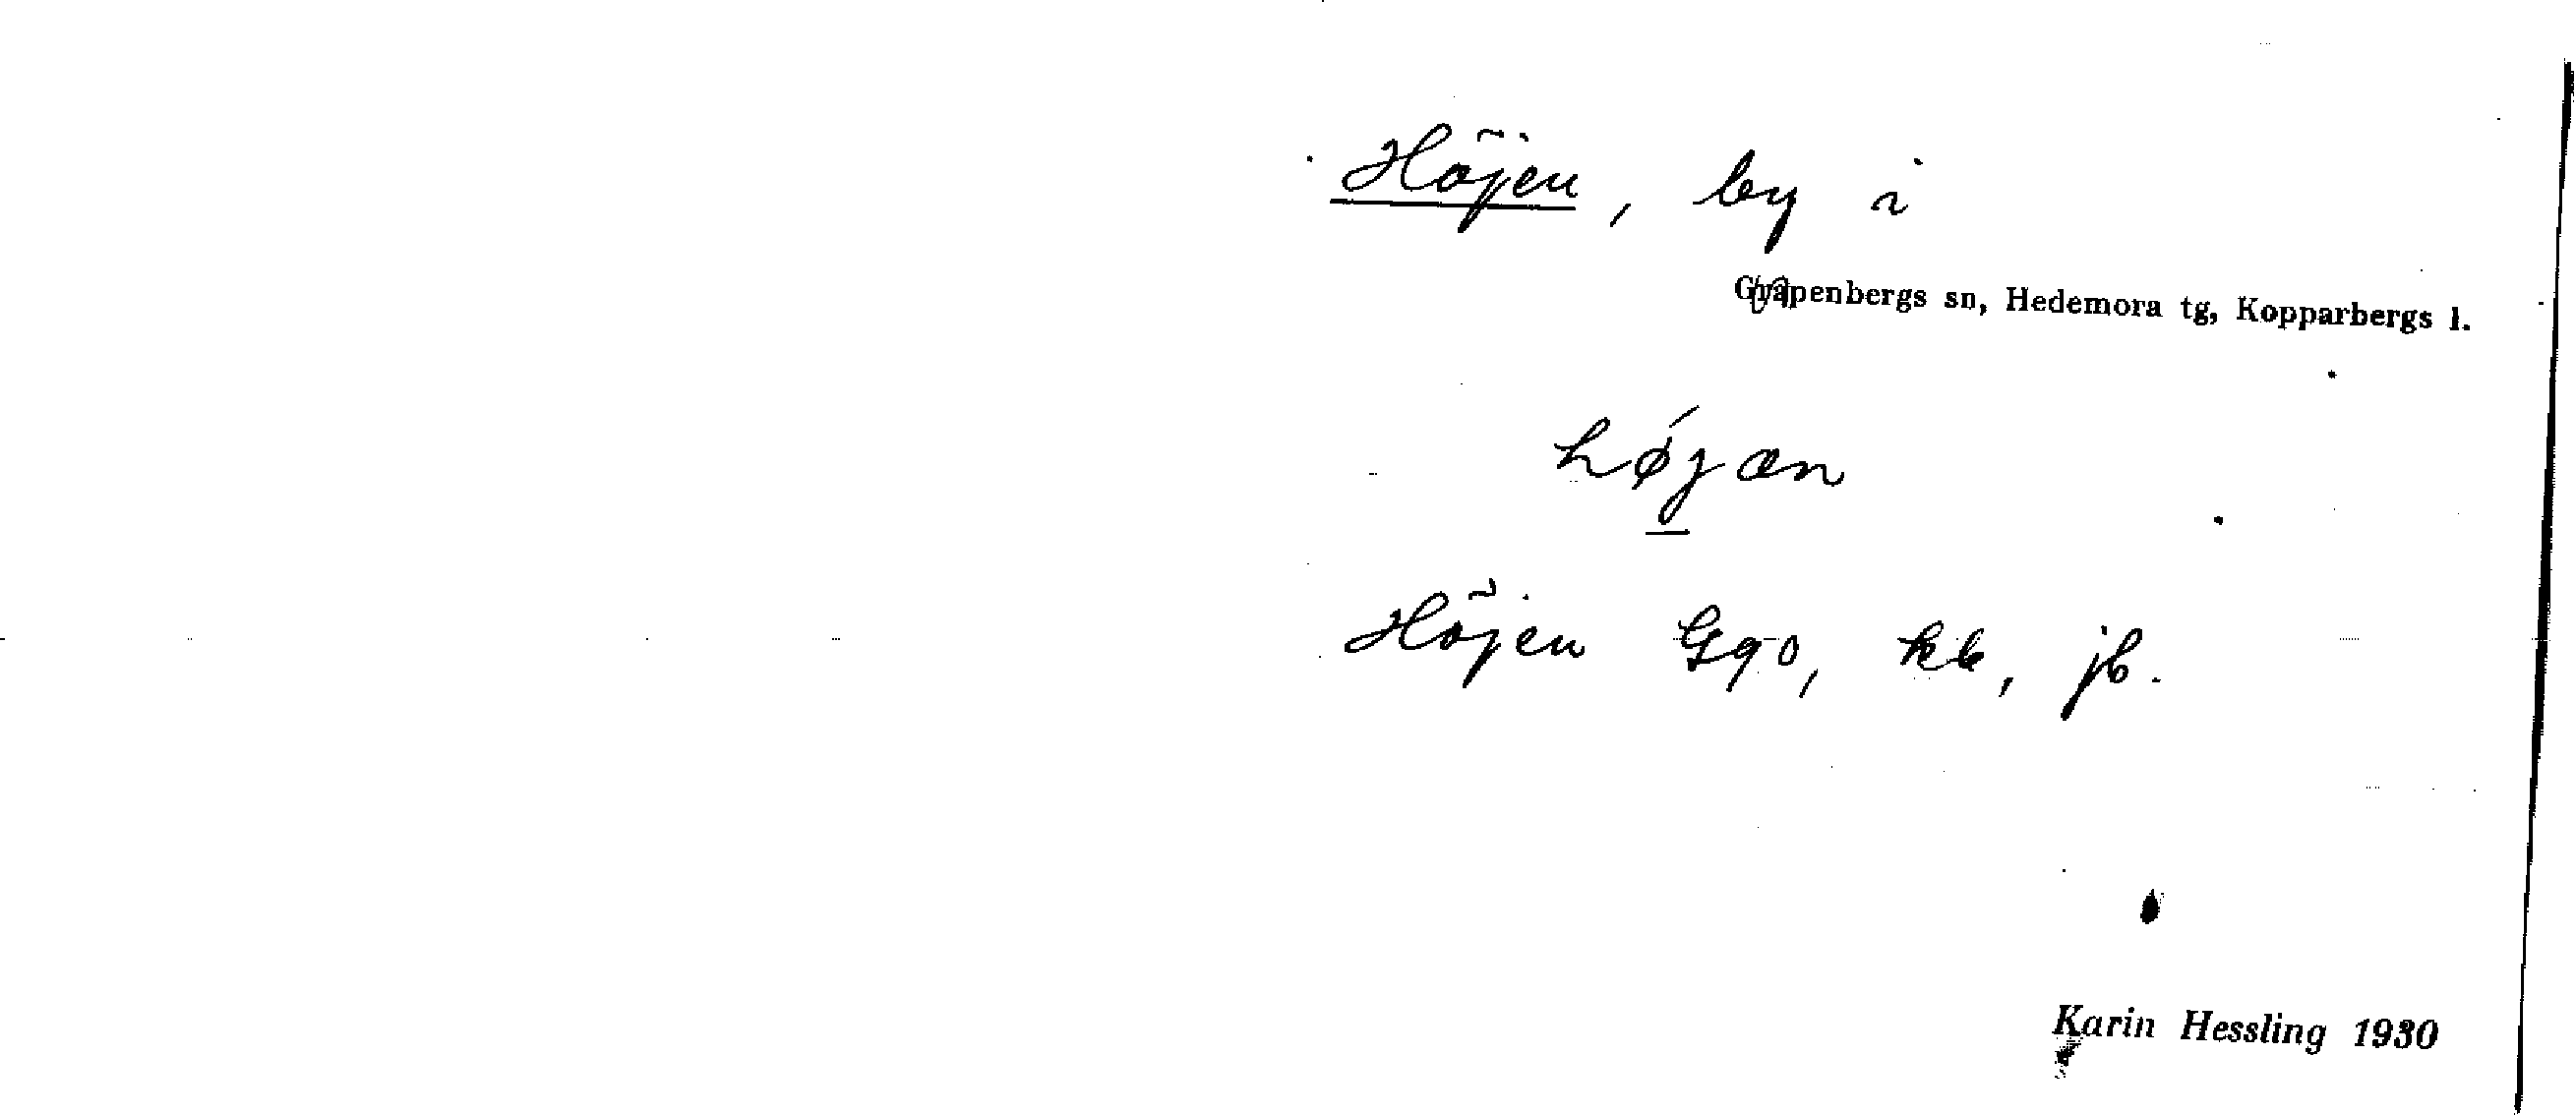 Höjen, by i
Garpenbergs sn, Hedemora tg, Kopparbergs l.
højæn
Höjen G90, kb, jb.
Karin Hessling 1930